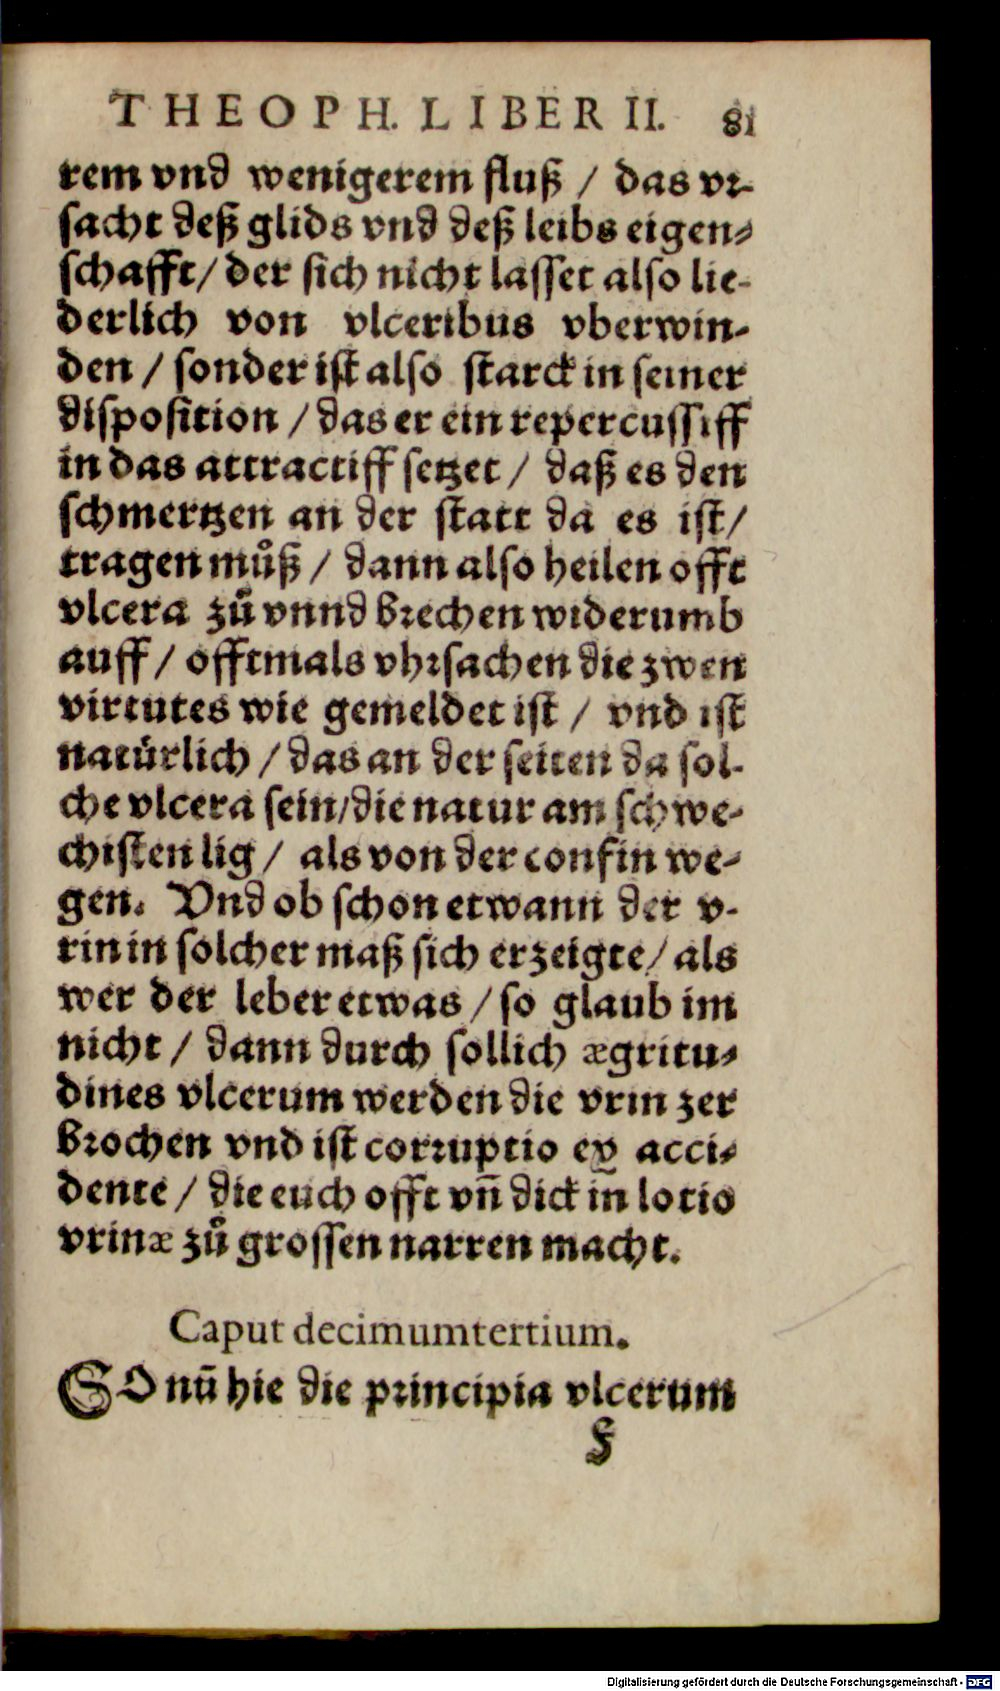 THEOPH. LIBER II. 81
rem vnd wenigerem fluß / das vr-
sacht deß glids vnd deß leibs eigen-
schafft / der sich nicht lasset also lie-
derlich von vlceribus vberwin-
den / sonder ist also starck in seiner
disposition / das er ein repercussiff
in das attractiff setzet / daß es den
schmertzen an der statt da es ist /
tragen můß / dann also heilen offt
vlcera zů vnnd brechen widerumb
auff / offtmals vhrsachen die zwen
virtutes wie gemeldet ist / vnd ist
natürlich / das an der seiten da sol-
che vlcera sein / die natur am schwe-
chisten lig / als von der confin we-
gen. Vnd ob schon etwann der v-
rin in solcher maß sich erzeigte / als
wer der leber etwas / so glaub im
nicht / dann durch sollich ægritu-
dines vlcerum werden die vrin zer
brochen vnd ist corruptio ex acci-
dente / die euch offt vñ dick in lotio
vrinæ zů grossen narren macht.
Caput decimumtertium.
SO nũ hie die principia vlcerum
f
Digitalisierung gefördert durch die Deutsche Forschungsgemeinschaft - DFG